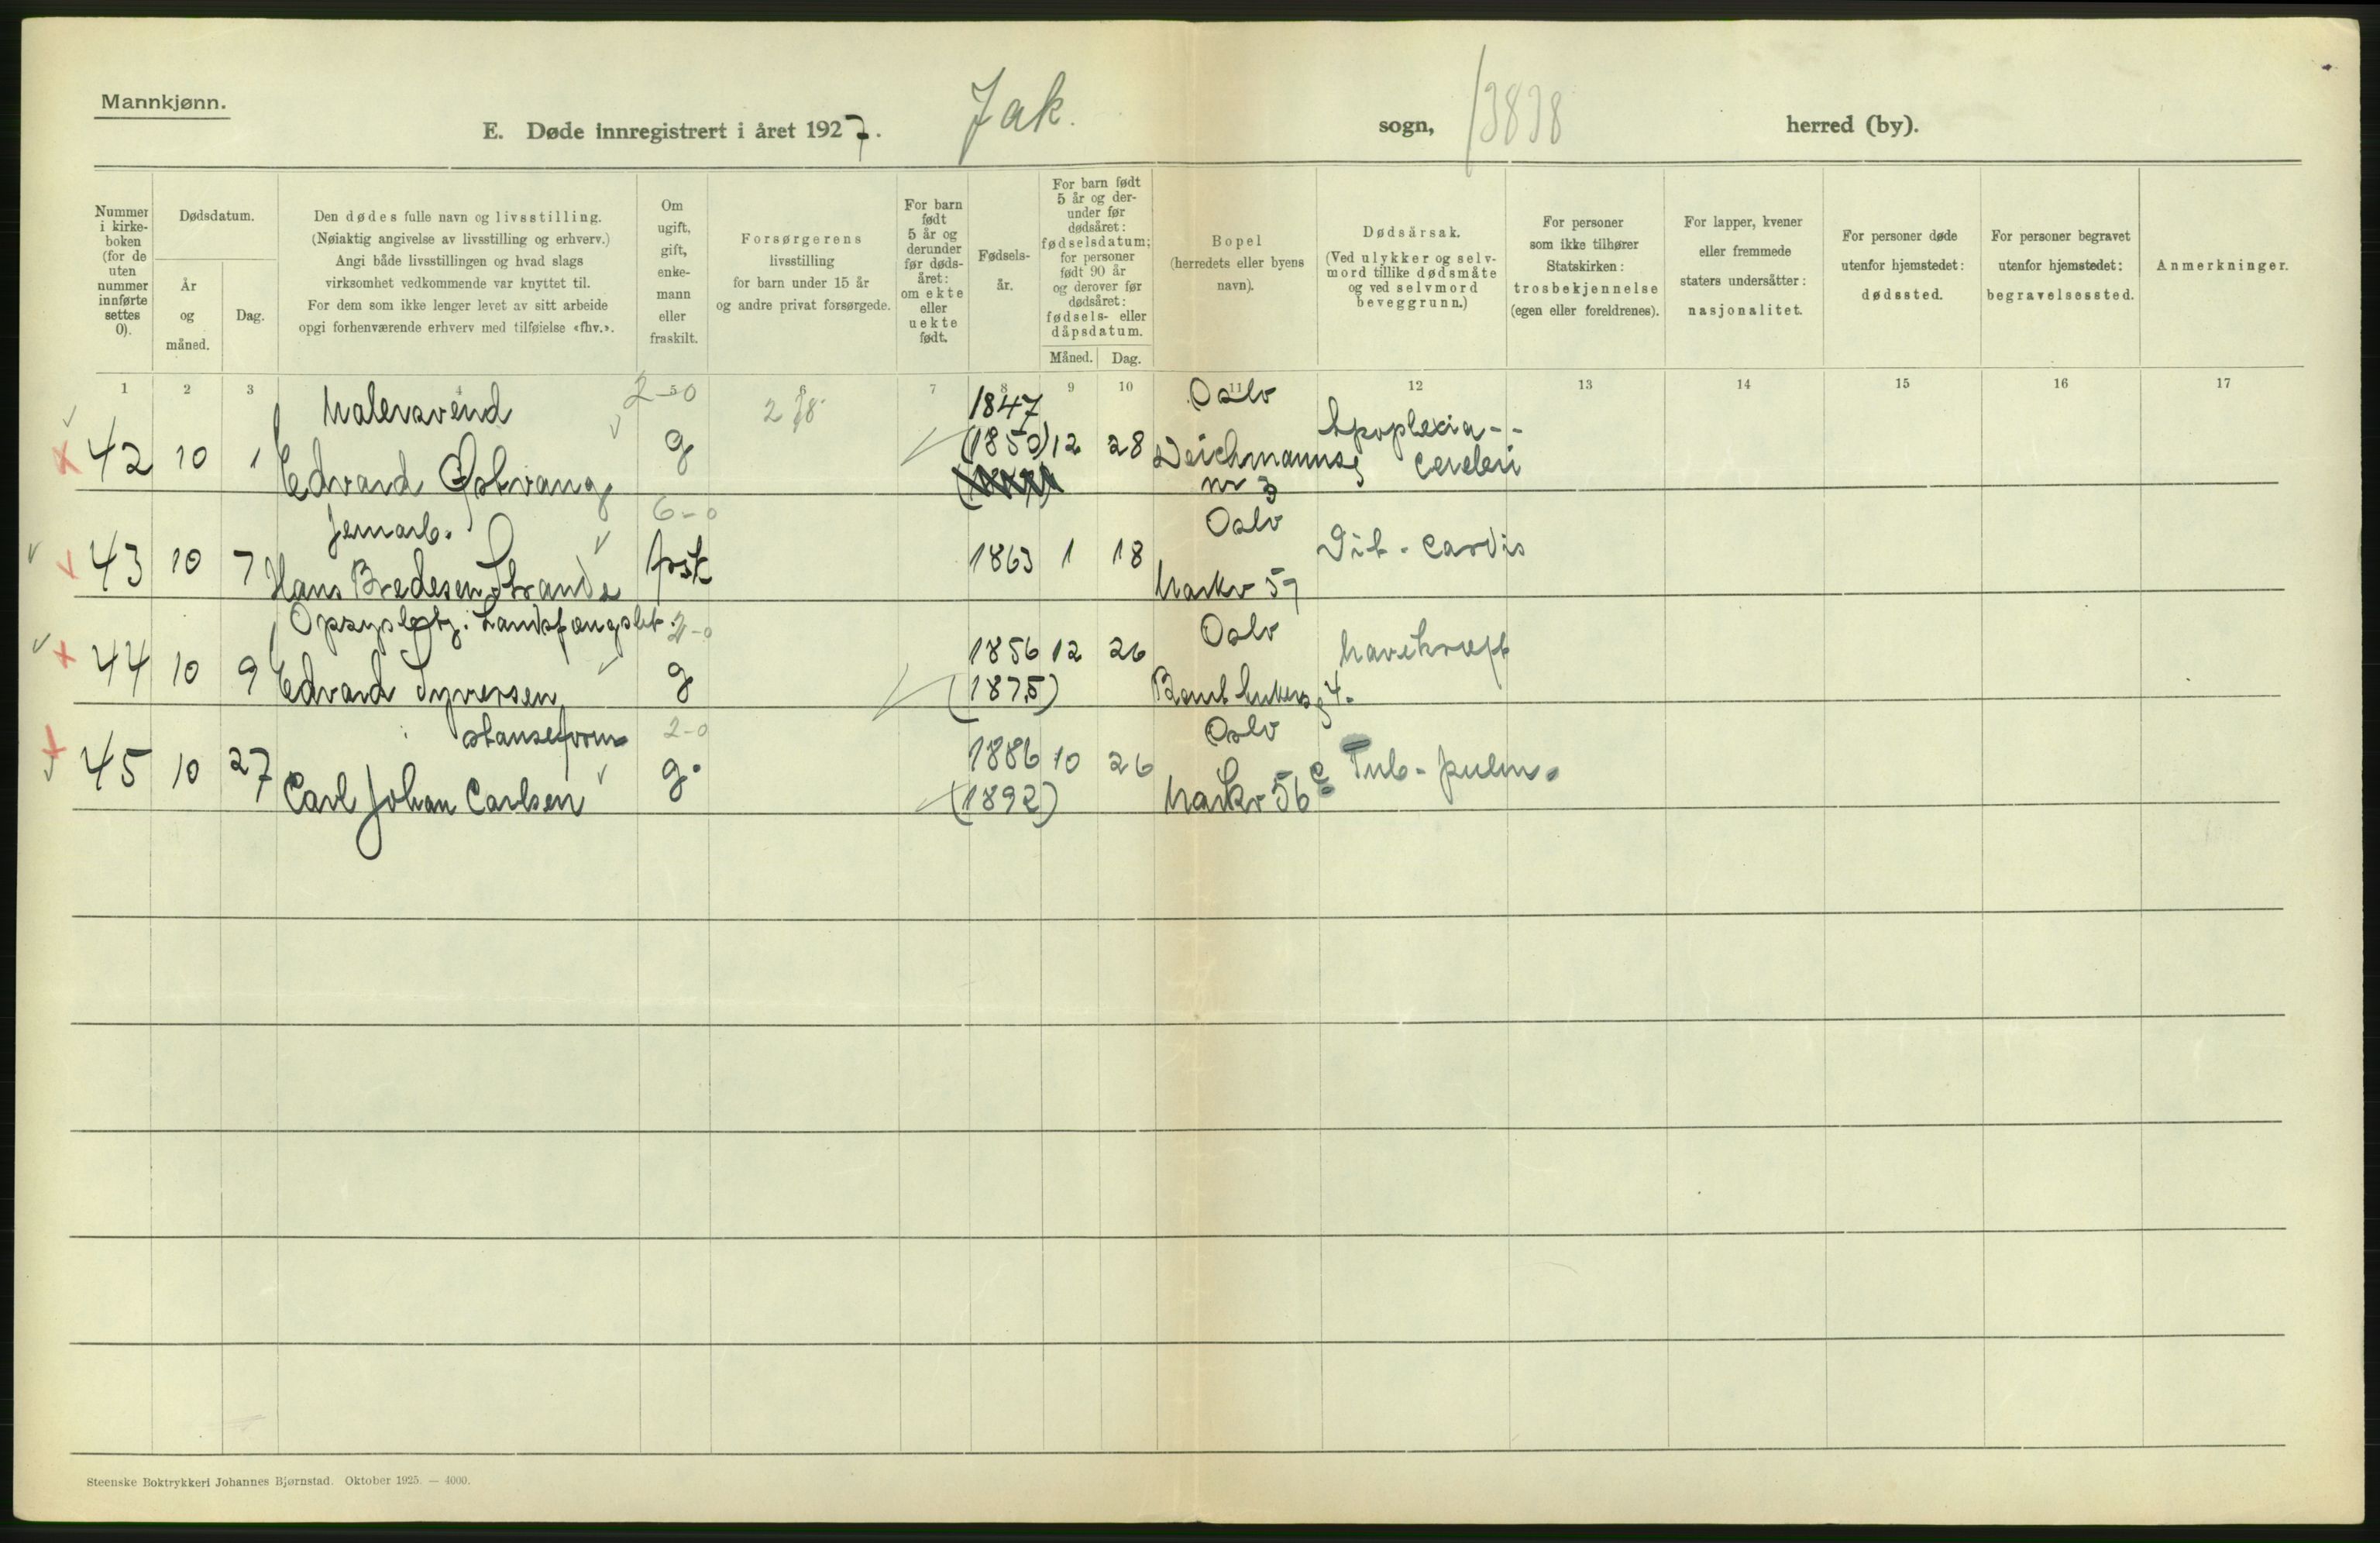 Mannkjønn.
E. Døde innregistrert i året 1927. Jak. sogn, 13838 herred (by).
Nummer i kirke-boken (for de uten nummer innførte settes 0).
Dødsdatum.
År og måned.
Dag.
Den dødes fulle navn og livsstilling.
(Nøiaktig angivelse av livsstilling og erhverv.)
Angi både livsstillingen og hvad slags
virksomhet vedkommende var knyttet til.
For dem som ikke lenger levet av sitt arbeide
opgi forhenværende erhverv med tilføielse «fhv.».
Om ugift, gift, enke-mann eller fraskilt.
Forsørgerens
livsstilling
for barn under 15 år
og andre privat forsørgede.
For barn født 5 år og derunder før døds-året: om ekte eller uekte født.
Fødsels-år.
For barn født 5 år og der-under før dødsåret: fødselsdatum; for personer født 90 år og derover før dødsåret: fødsels- eller dåpsdatum.
Måned. Dag.
Bopel
(herredets eller byens
navn).
Dødsårsak.
(Ved ulykker og selv-
mord tillike dødsmåte
og ved selvmord
beveggrunn.)
For personer
som ikke tilhører
Statskirken:
trosbekjennelse
(egen eller foreldrenes).
For lapper, kvener
eller fremmede
staters undersåtter:
nasjonalitet.
For personer døde
utenfor hjemstedet:
dødssted.
For personer begravet
utenfor hjemstedet:
begravelsessted.
Anmerkninger.
1 2 3 4 5 6 7 8 9 10 11 12 13 14 15 16 17
Malersvend 2-0 1847 Oslo
42 10 1 Edvard Østvang g (1850) 12 28 Deichmannsg nr 3 Apoplexia -- cerebri
Jernarb. 6-0 Oslo
43 10 7 Hans Bredesen Strande frsk 1863 1 18 Markv 57 Vit. cordis
Opsynsbetj. Landsfængslet 2-0 Oslo
44 10 9 Edvard Syversen g 1856 12 26 Mavekræft
(1875) 4.
stanseform 2-0 Oslo
45 10 27 Carl Johan Carlsen g. 1886 10 26 Markv 56 c Tub. pulm.
(1892)
Steenske Boktrykkeri Johannes Bjørnstad. Oktober 1925. — 4000.